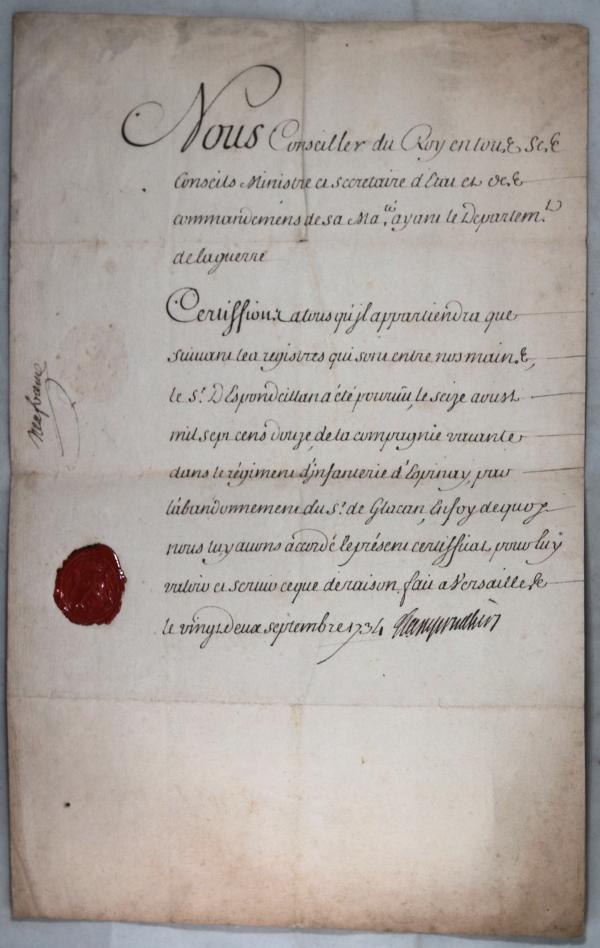 Nous Conseiller du Roy en tous ses
Conseils Ministre et secretaire d'Etat et des
commandemens de sa Ma.té ayant le Departem.t
de la guerre
Certiffions a tous qu'jl appartiendra que
suivant les registres qui sont entre nos mains,
le S.r D'Espondeillan a été pourvû, le seize aoust
mil sept cens douze de la compagnie vacante
dans le régiment d'jnfanterie d'Espinay, par
l'abandonnement du S.r de Glocan, En foy de quoy
nous luy avons accordé le présent certifficat, pour luy
valoir et servir ce que de raison, fait a Versailles
le vingt deux septembre 1734